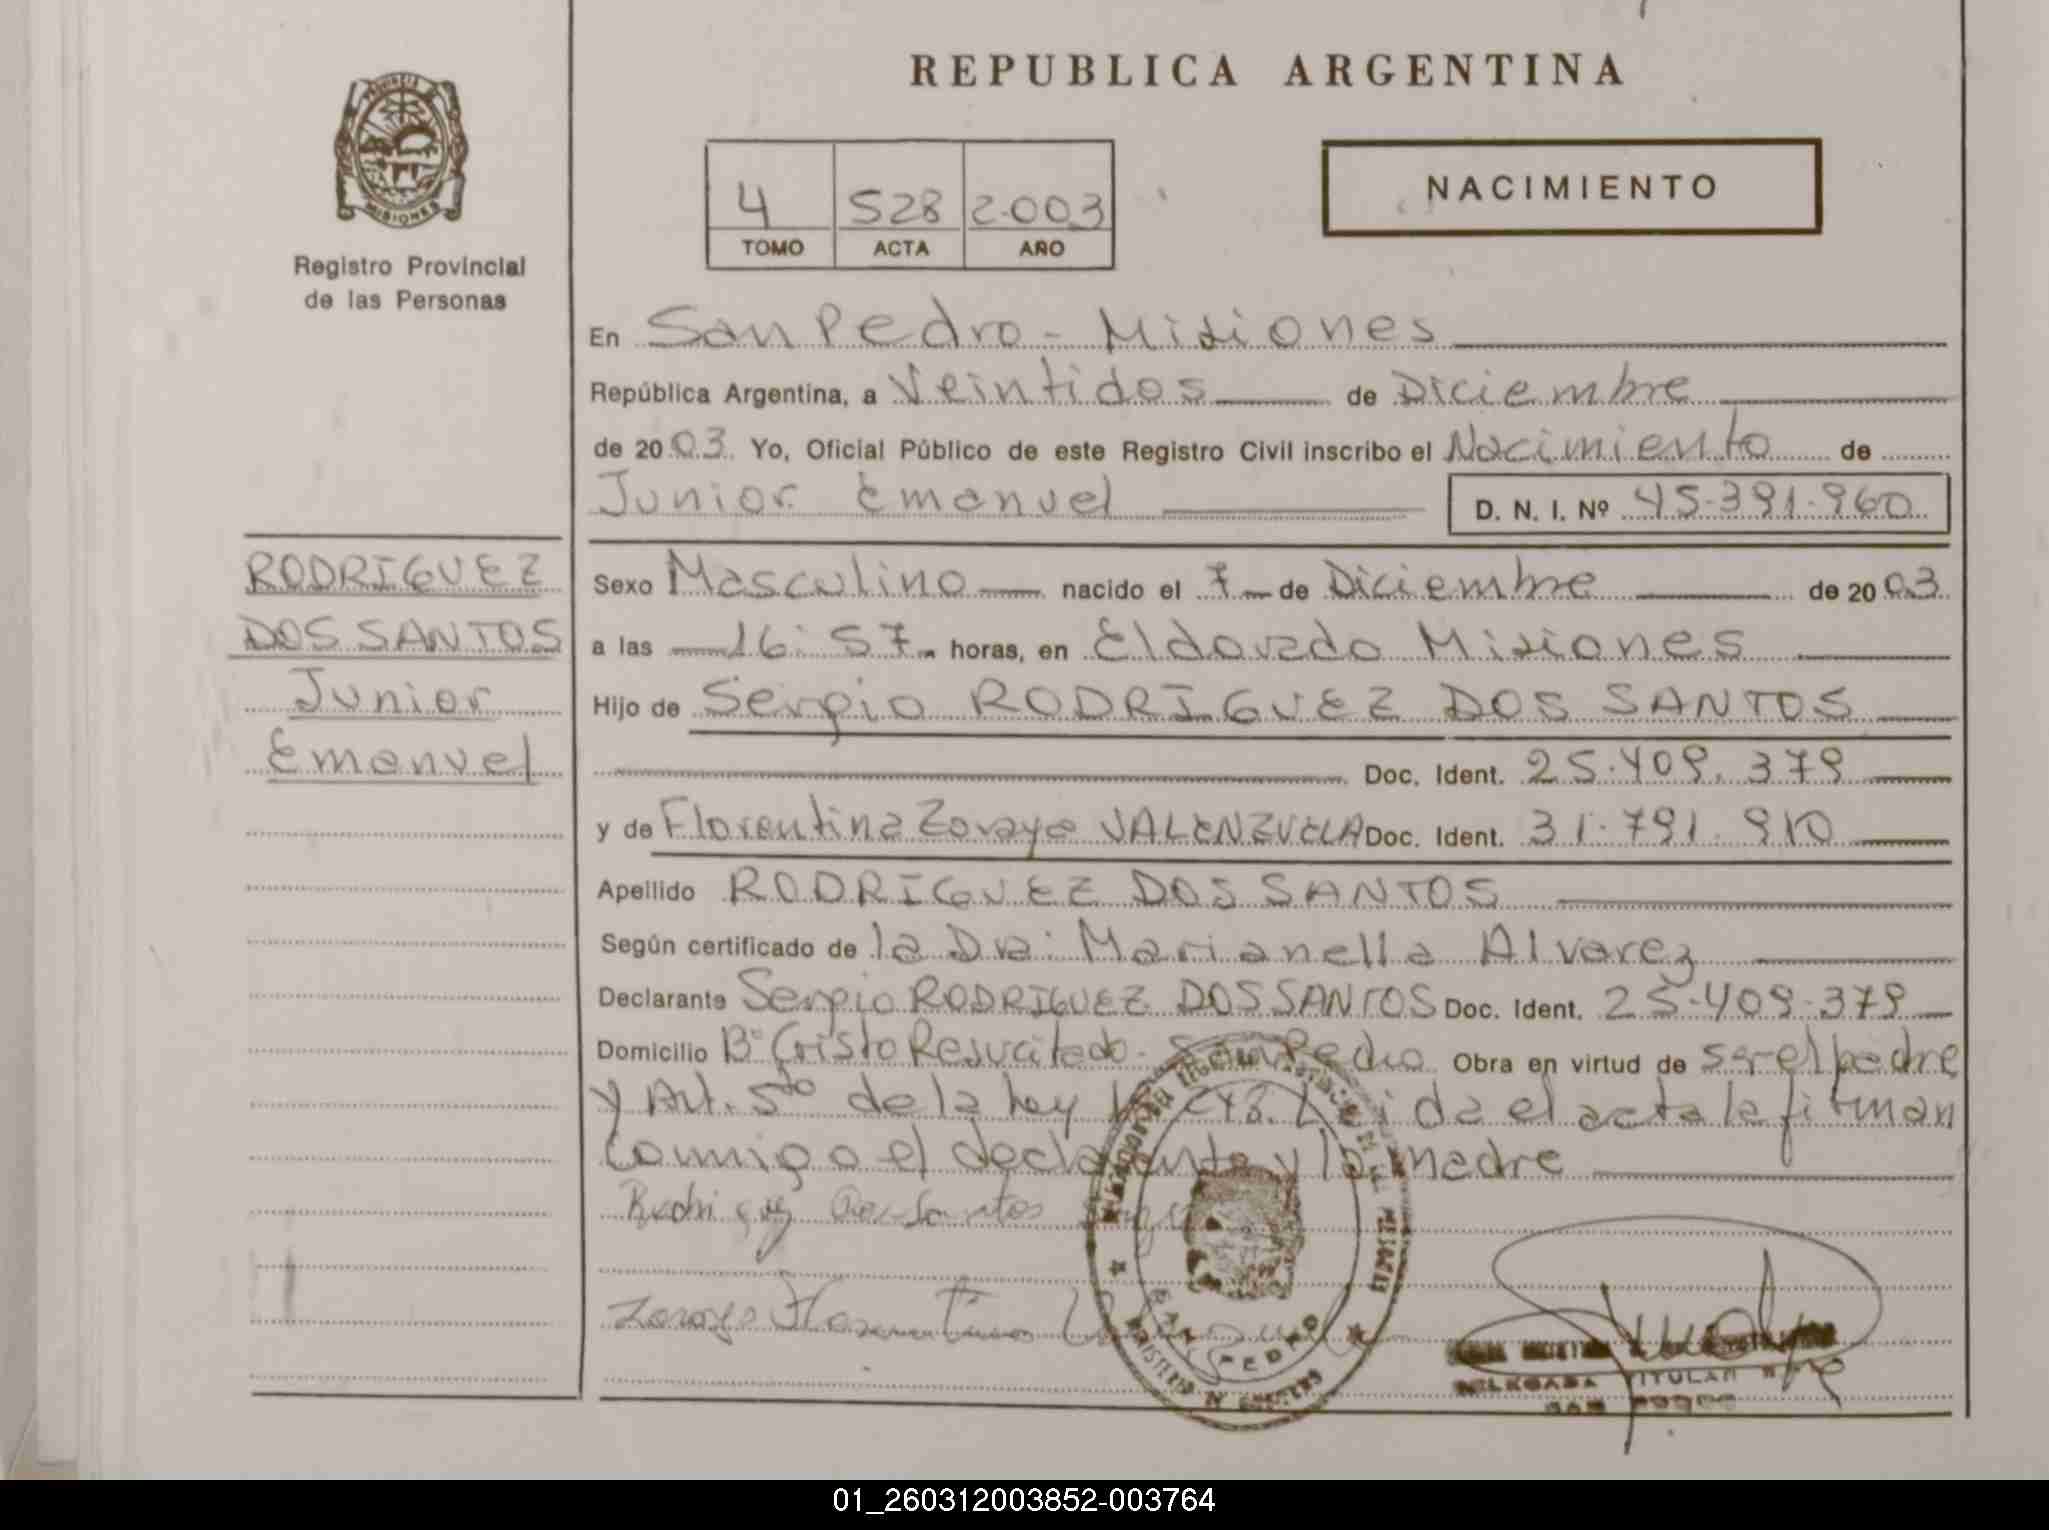 REPUBLICA ARGENTINA
PROVINCIA DE
MISIONES
Registro Provincial
de las Personas
4 528 2.003
TOMO ACTA AÑO
NACIMIENTO
En San Pedro - Misiones
República Argentina, a Veintidos de Diciembre
de 2003. Yo, Oficial Público de este Registro Civil inscribo el Nacimiento de
Junior Emanuel D. N. I. Nº 45.391.960
RODRIGUEZ
DOS SANTOS
Junior
Emanuel
Sexo Masculino nacido el 7 de Diciembre de 2003
a las 16:57 horas, en Eldorado Misiones
Hijo de Sergio RODRIGUEZ DOS SANTOS
Doc. Ident. 25.409.379
y de Florentina Zoraya VALENZUELA Doc. Ident. 31.791.910
Apellido RODRIGUEZ DOS SANTOS
Según certificado de la Dra. Marianella Alvarez
Declarante Sergio RODRIGUEZ DOS SANTOS Doc. Ident. 25.409.379
Domicilio Bº Cristo Resucitado - San Pedro Obra en virtud de ser el padre
y Art. 5to de la Ley da el acta la firman
conmigo el declarante y la madre
Rodriguez Dos Santos
Zoraya Florentina
SAN PEDRO
MINISTERIO DE GOBIERNO
DELEGADA TITULAR
SAN PEDRO
01_260312003852-003764